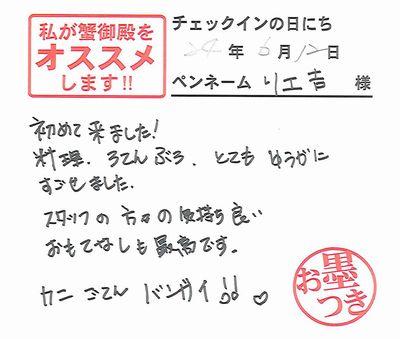 私が蟹御殿を
オススメ
します!!
チェックインの日にち
24年6月12日
ペンネーム り工吉 様
初めて来ました!
料理、ろてんぶろ、とても ゆうがに
すごせました.
スタッフの方々の気持ち良い
おもてなしも最高です。
カニごてん バンザイ!! ♡
お墨つき